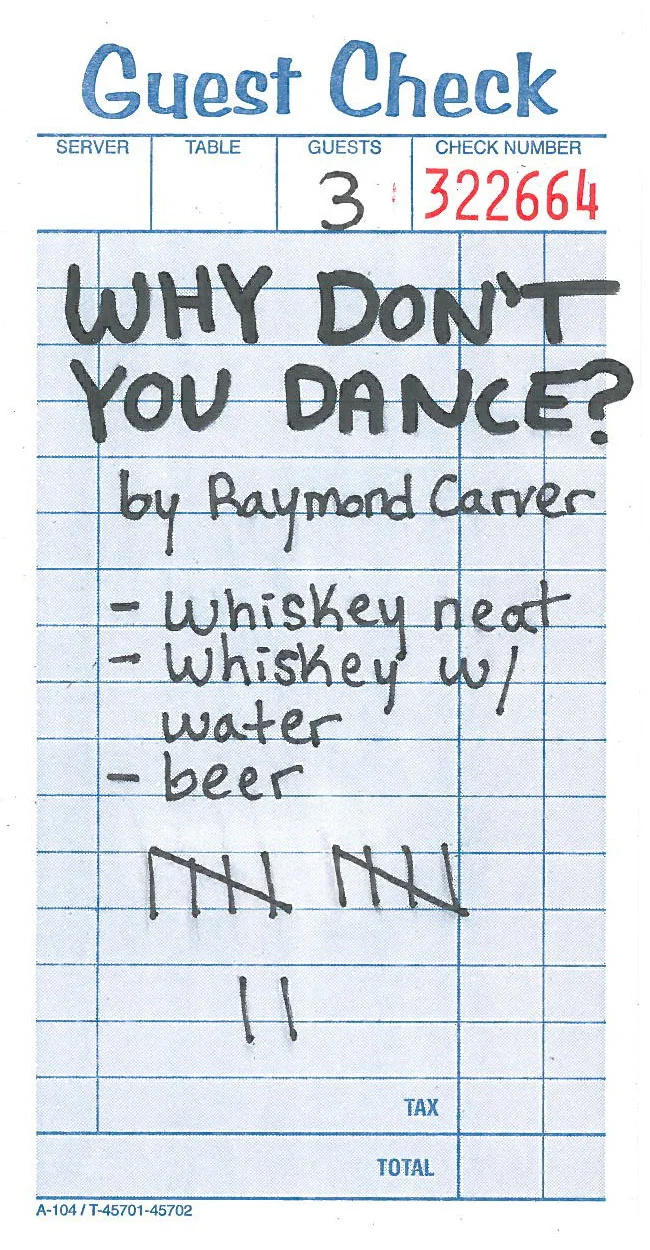 Guest Check
SERVER TABLE GUESTS CHECK NUMBER
3 322664
WHY DON'T
YOU DANCE?
by Raymond Carver
- whiskey neat
- whiskey w/
water
- beer
TAX
TOTAL
A-104 / T-45701-45702